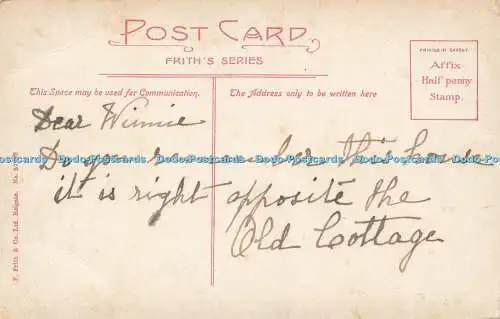 POST CARD
FRITH'S SERIES
This Space may be used for Communication.
The Address only to be written here
PRINTED IN SAXONY
Affix
Half penny
Stamp.
Dear Winnie
Do you remember this house
it is right opposite the
Old Cottage
F. Frith & Co. Ltd. Reigate. No.
Dodo-Postcards Dodo-Postcards Dodo-Postcards Dodo-Postcards Dodo-Postcards